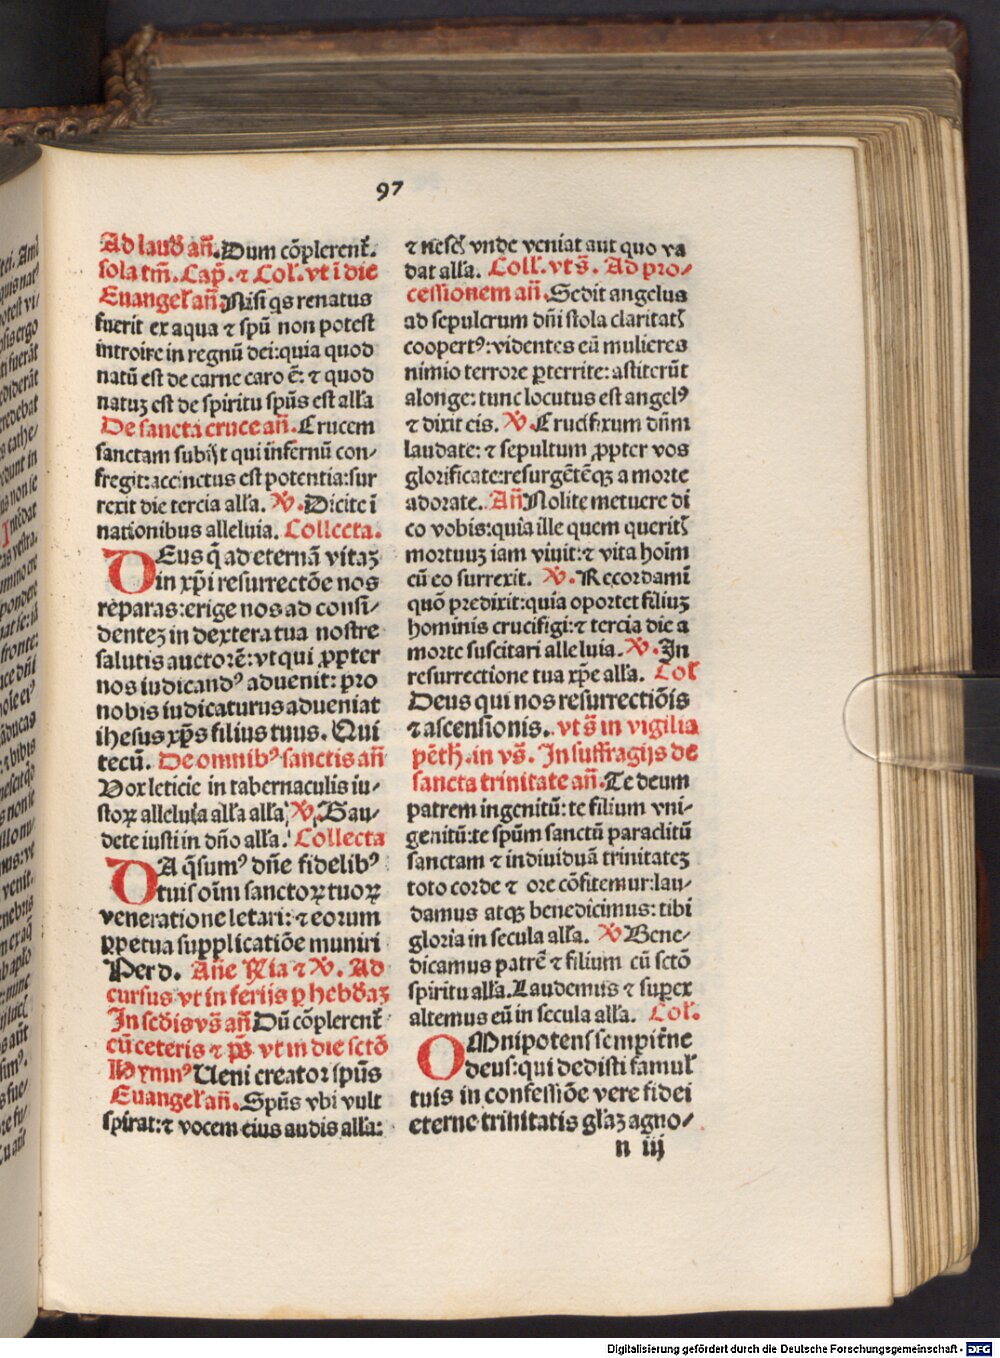 97
Ad laud᷒ an̄. Dum cōplerent᷑.
sola tm̄. Cap̄. ⁊ Col̄. vt ī die
Euangel̄ an̄ Nisi qs renatus
fuerit ex aqua ⁊ spū non potest
introire in regnū dei: quia quod
natū est de carne caro ē: ⁊ quod
natuꝫ est de spiritu spūs est all̄a
De sancta cruce an̄. Crucem
sanctam subijt qui infernū con⸗
fregit: accinctus est potentia: sur
rexit die tercia all̄a. ℣. Dicite ī
nationibus alleluia. Collecta.
DEus q̄ ad eternā vitaꝫ
in xp̄i resurrectōe nos
reparas: erige nos ad consi⸗
denteꝫ in dextera tua nostre
salutis auctorē: vt qui ꝓpter
nos iudicandꝰ aduenit: pro
nobis iudicaturus adueniat
ihesus xp̄s filius tuus. Qui
tecū. De omnibꝰ sanctis an̄
Vox leticie in tabernaculis iu⸗
stoꝝ alleluia all̄a all̄a. ℣. Gau⸗
dete iusti in dn̄o all̄a. Collecta
DA q̄sumꝰ dn̄e fidelibꝰ
tuis oīm sanctoꝝ tuoꝝ
veneratione letari: ⁊ eorum
ꝑpetua supplicatiōe muniri
Per d. An̄e Rīa ⁊ ℣. Ad
cursus vt in ferijs p hebd̄aꝫ
In sc̄dis vs̄ an̄ Dū cōplerent᷑
cū ceteris ⁊ ps̄ vt in die sctō
Hymnꝰ Veni creator spūs
Euangel̄ an̄. Spūs vbi vult
spirat: ⁊ vocem eius audis all̄a:
⁊ nescꝭ vnde veniat aut quo va
dat all̄a. Coll̄. vt s̄. Ad pro⸗
cessionem an̄. Sedit angelus
ad sepulcrum dn̄i stola claritatꝭ
coopertꝰ: videntes eū mulieres
nimio terrore ꝑterrite: astiterūt
alonge: tunc locutus est angelꝰ
⁊ dixit eis. ℣. Crucifixum dn̄m
laudate: ⁊ sepultum ꝓpter vos
glorificate: resurgētēqꝫ a morte
adorate. An̄ Nolite metuere di
co vobis: quia ille quem queritꝭ
mortuuꝫ iam viuit: ⁊ vita hoīm
cū eo surrexit. ℣. Recordamī
quō predixit: quia oportet filiuꝫ
hominis crucifigi: ⁊ tercia die a
morte suscitari alleluia. ℣. In
resurrectione tua xp̄e all̄a. Col̄
Deus qui nos resurrectiōis
⁊ ascensionis. vt s̄ in vigilia
pēth. in vs̄. In suffragijs de
sancta trinitate an̄. Te deum
patrem ingenitū: te filium vni⸗
genitū: te spūm sanctū paraclitū
sanctam ⁊ indiuiduā trinitateꝫ
toto corde ⁊ ore cōfitemur: lau⸗
damus atqꝫ benedicimus: tibi
gloria in secula all̄a. ℣ Bene⸗
dicamus patrē ⁊ filium cū sctō
spiritu all̄a. Laudemus ⁊ superex
altemus eū in secula all̄a. Col̄.
OMnipotens sempit̄ne
deus: qui dedisti famul̄
tuis in confessiōe vere fidei
eterne trinitatis gl̄aꝫ agno⸗
n iij
Digitalisierung gefördert durch die Deutsche Forschungsgemeinschaft - DFG